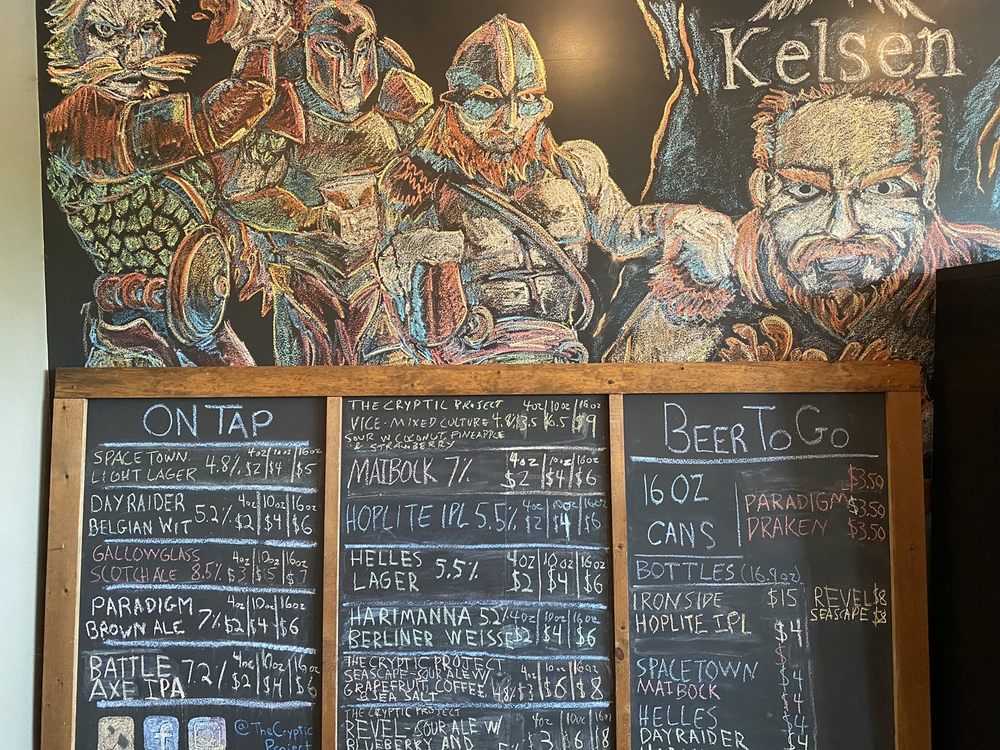 Kelsen
ON TAP
SPACETOWN
LIGHT LAGER 4.8% 4oz 10oz 16oz $2 $4 $5
DAYRAIDER
BELGIAN WIT 5.2% 4oz 10oz 16oz $2 $4 $6
GALLOWGLASS
SCOTCH ALE 8.5% 4oz 10oz 16oz $3 $5 $7
PARADIGM
BROWN ALE 7% 4oz 10oz 16oz $2 $4 $6
BATTLE
AXE IPA 7.2% 4oz 10oz 16oz $2 $4 $6
@TheCryptic
Project
THE CRYPTIC PROJECT 4oz 10oz 16oz
VICE-MIXED CULTURE 4.8% $9
SOUR W COCONUT PINEAPPLE
& STRAWBERRY
MAIBOCK 7% 4oz 10oz 16oz $2 $4 $6
HOPLITE IPL 5.5% 4oz 10oz 16oz $2 $4 $6
HELLES
LAGER 5.5% 4oz 10oz 16oz $2 $4 $6
HARIMANNA 5.2% 4oz 10oz 16oz
BERLINER WEISSE $2 $4 $6
THE CRYPTIC PROJECT
SEASCAPE-SOUR ALE W/
GRAPEFRUIT, COFFEE
& SEA SALT 4.8% 4oz 10oz 16oz $3 $6 $8
THE CRYPTIC PROJECT
REVEL-SOUR ALE W/ 4oz 10oz 16oz
BLUEBERRY AND $3 $6 $8
BEER TO GO
16 OZ
CANS
$3.50
PARADIGM $3.50
DRAKEN $3.50
BOTTLES (16.9oz)
IRONSIDE $15
HOPLITE IPL $4
REVEL $8
SEASCAPE $8
SPACETOWN $4
MAIBOCK $4
HELLES $4
DAYRAIDER $4